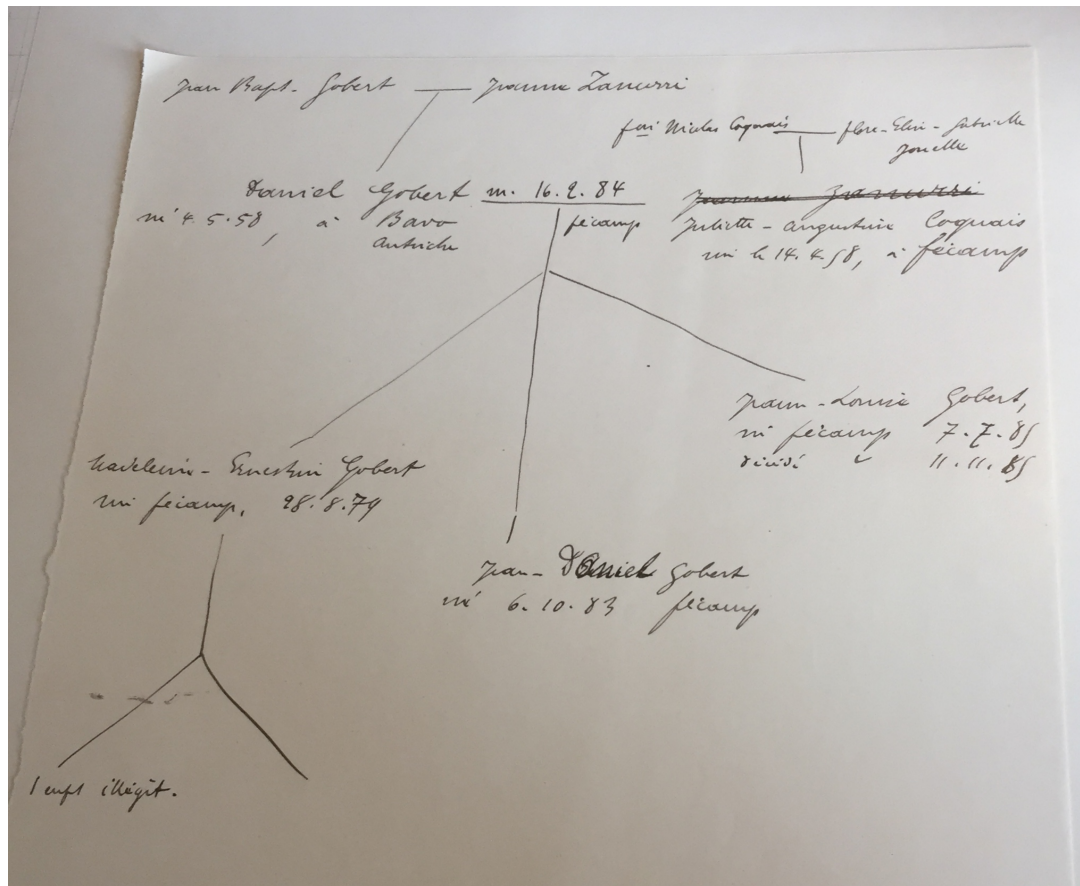 Jean Bapt. Gobert — Jeanne Zanurri
feu Nicolas Coquais — flore-Elise-Gabrielle
Daniel Gobert m. 16.2.84
fécamp
né 4.5.58, à Bavo
Autriche
Juliette-Augustine Coquais
née le 14.4.58, à fécamp
Jeanne-Louise Gobert,
née fécamp 7.7.85
décédé 11.11.85
Madeleine-Ernestine Gobert
née fécamp, 28.8.79
Jean-Daniel Gobert
né 6.10.83 fécamp
1 enft illégit.